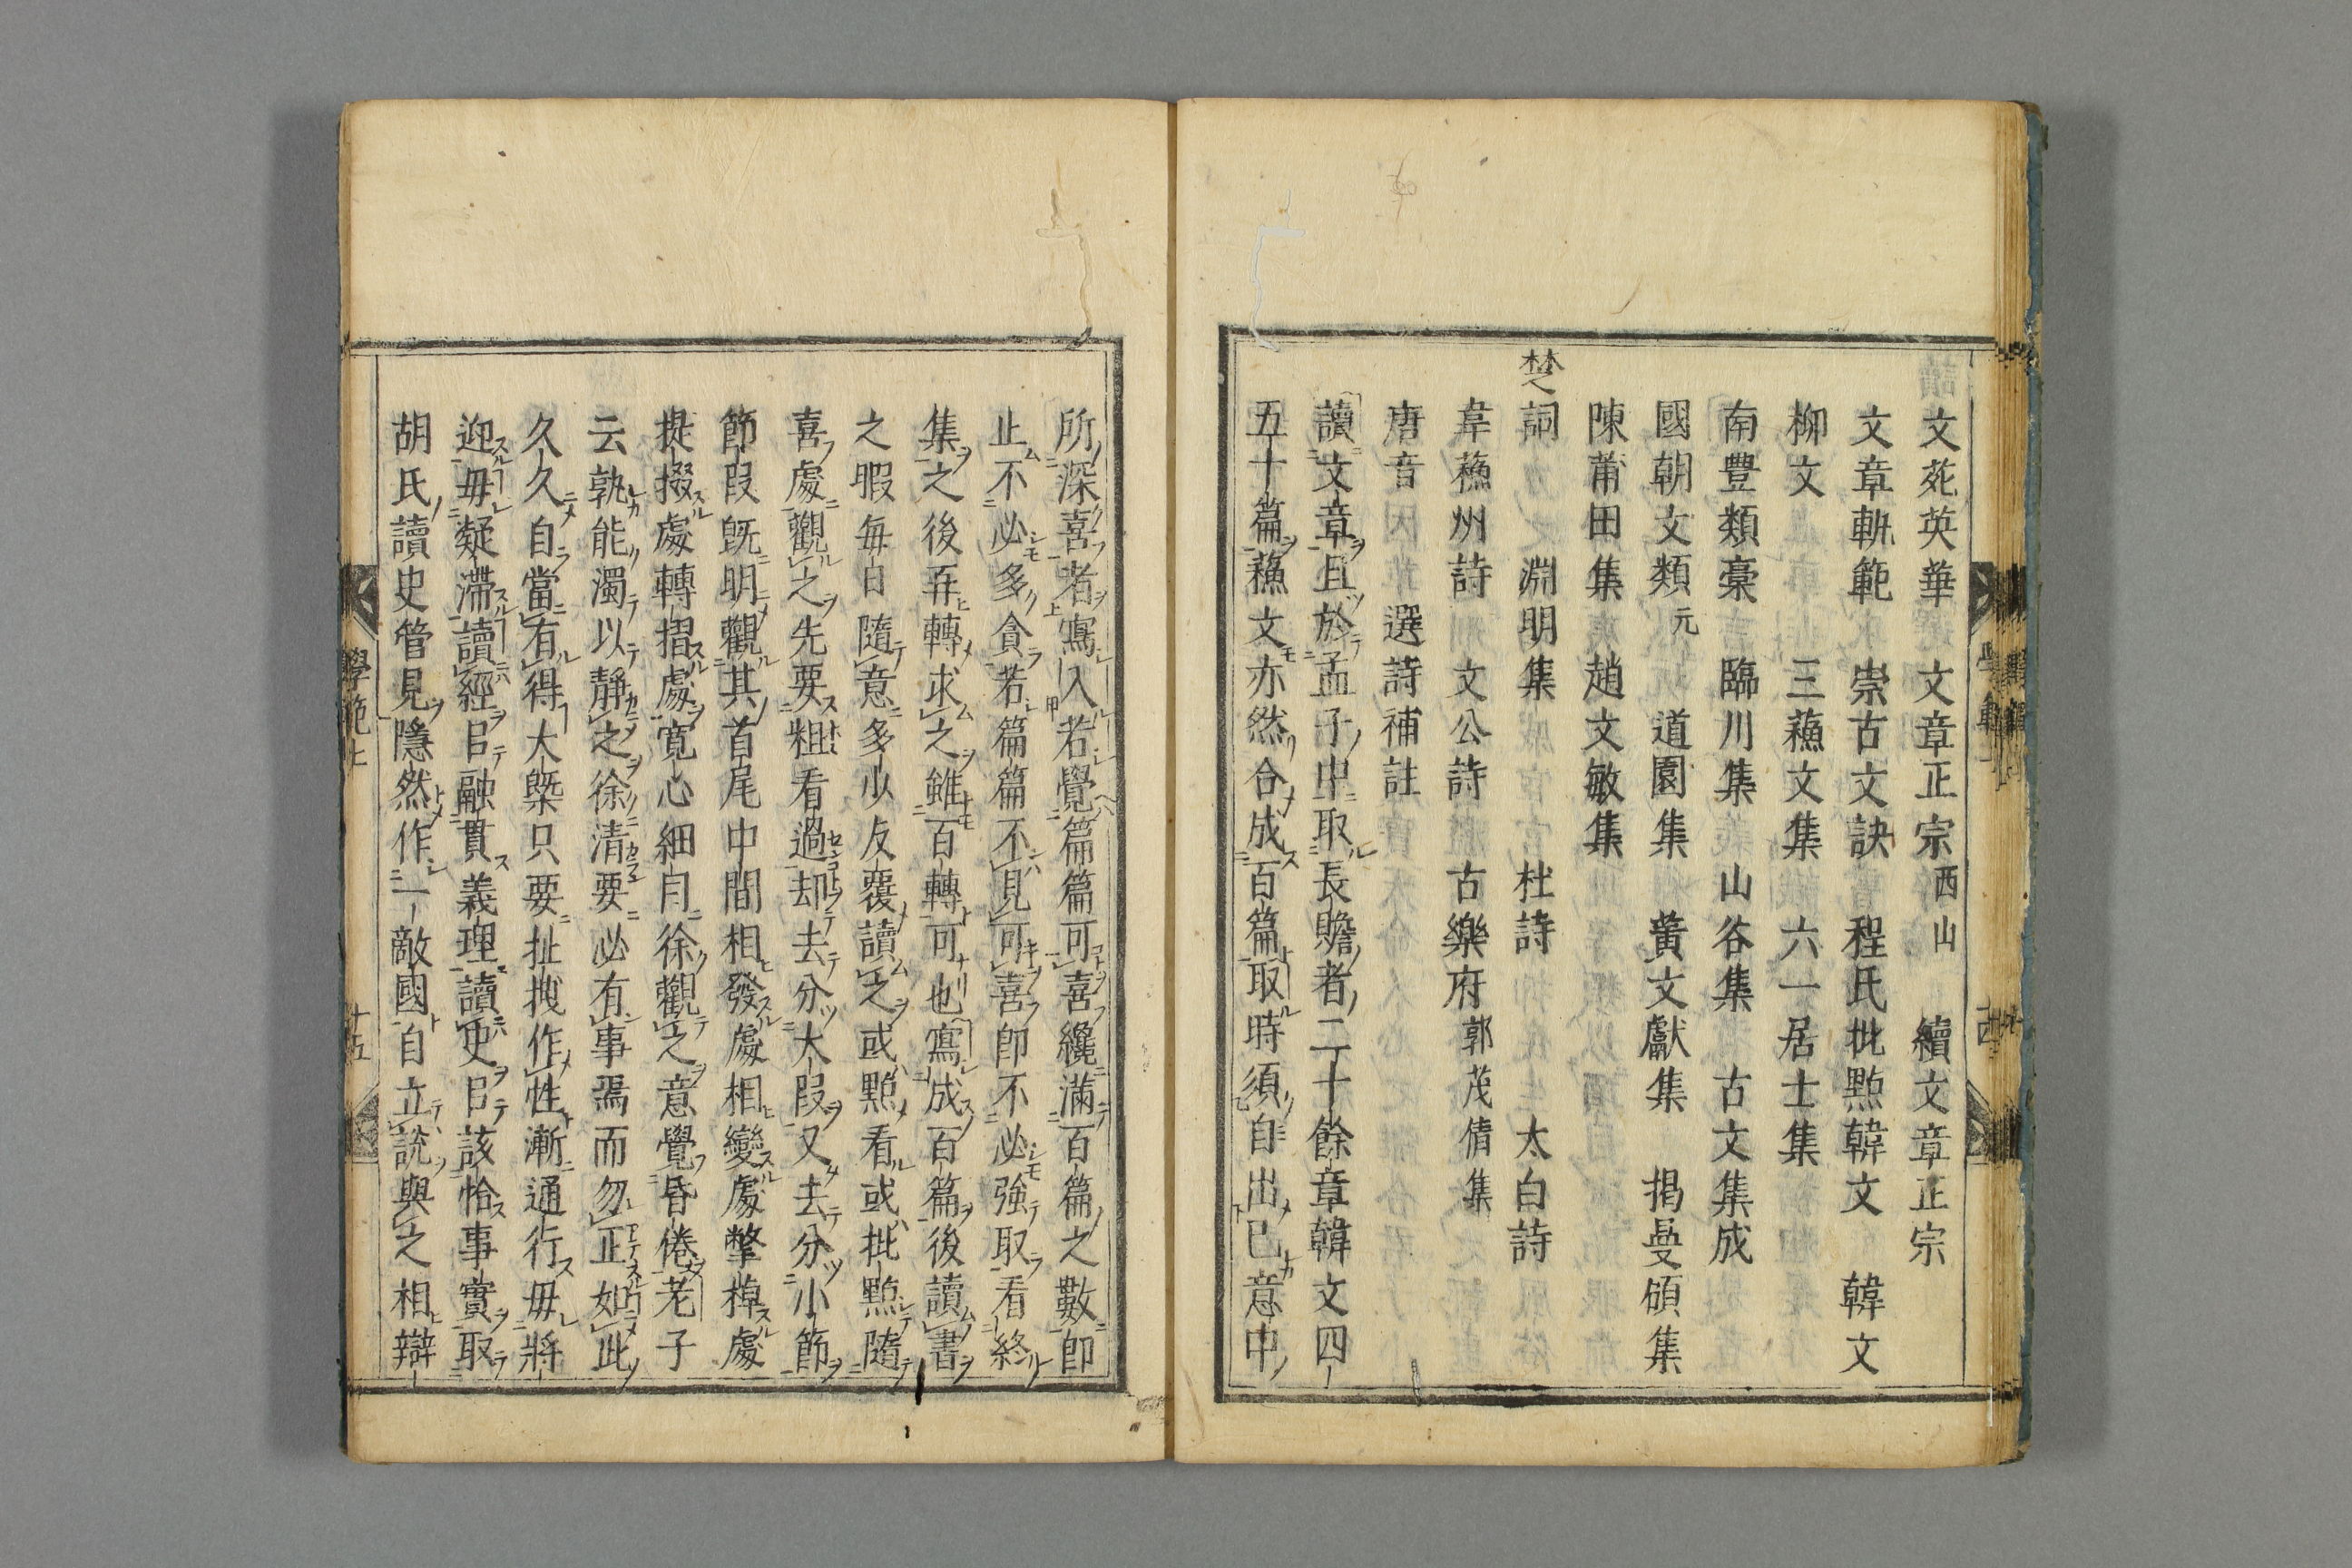 文苑英華　文章正宗西山　續文章正宗
文章軌範　崇古文訣　程氏批點韓文　韓文
柳文　三蘓文集　六一居士集
南豊類稾　臨川集　山谷集　古文集成
國朝文類元　道園集　黄文獻集　掲曼碩集
陳莆田集　趙文敏集
楚詞　淵明集　杜詩　太白詩
韋蘓州詩　文公詩　古樂府郭茂倩集
唐音　選詩補註
讀文章且於孟子中取長贍者二十餘章韓文四
五十篇蘓文亦然合成百篇取時須自出已意中
所深喜者寫入若覺篇篇可喜纔滿百篇之數即
止不必多貪若篇篇不見可喜即不必強取看終
集之後再轉求之雖百轉可也寫成百篇後讀書
之暇毎日隨意多少反覆讀之或點看或批點隨
喜處觀之先要粗看過却去分大段又去分小節
節段既明觀其首尾中間相發處相變處撆掉處
提掇處轉摺處寛心細目徐觀之意覺昏倦老子
云孰能濁以靜之徐清要必有事焉而勿正如此
久久自當有得大槩只要扯拽作性漸通行毋將
迎毋疑滞讀經㠯融貫義理讀史㠯該恰事實取
胡氏讀史管見隱然作一敵國自立說與之相辯
學範上
十五